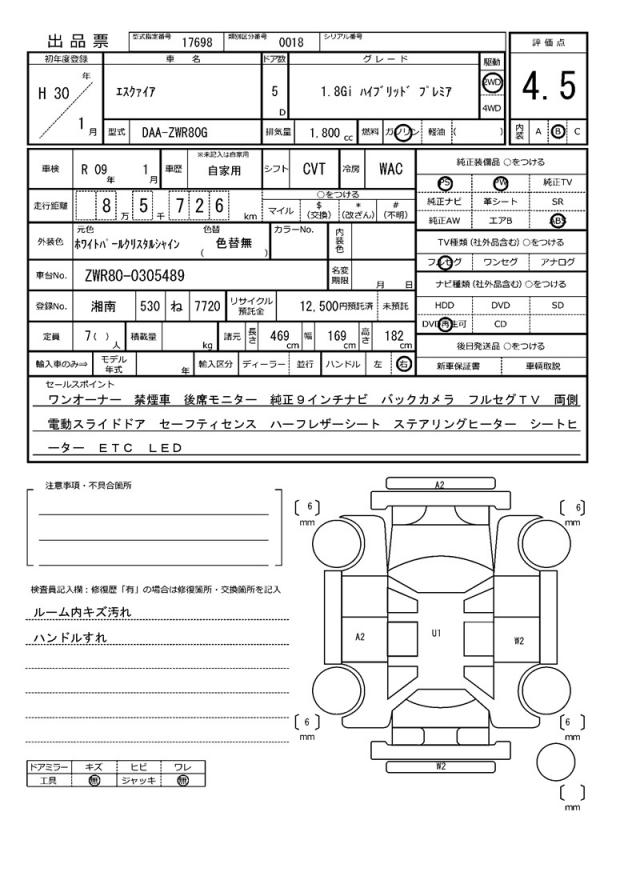 出品票 型式指定番号 17698 類別区分番号 0018 シリアル番号
評価点
4.5
内装 A B C
初年度登録 車名 ドア数 グレード 駆動
H 30 年 1 月
エスクァイア 5 D 1.8Gi ハイブリッド プレミア 2WD 4WD
型式 DAA-ZWR80G 排気量 1.800 cc 燃料 ガソリン 軽油 ( )
車検 R 09 年 1 月 車歴 ※未記入は自家用 自家用 シフト CVT 冷房 WAC
走行距離 8 万 5 千 7 2 6 km
○をつける
マイル $(交換) *(改ざん) #(不明)
外装色 元色 ホワイトパールクリスタルシャイン 色替 ( 色替無 ) カラーNo. 内装色
車台No. ZWR80-0305489 名変期限 月 日
登録No. 湘南 530 ね 7720 リサイクル預託金 12,500円預託済 未預託
定員 7( )人 積載量 kg 諸元 長さ 469 cm 幅 169 cm 高さ 182 cm
輸入車のみ⇒ モデル年式 年 輸入区分 ディーラー 並行 ハンドル 左 右
純正装備品 ○をつける
PS PW 純正TV
純正ナビ 革シート SR
純正AW エアB ABS
TV種類(社外品含む)○をつける
フルセグ ワンセグ アナログ
ナビ種類(社外品含む)○をつける
HDD DVD SD
DVD再生可 CD
後日発送品 ○をつける
新車保証書 車輌取説
セールスポイント
ワンオーナー 禁煙車 後席モニター 純正９インチナビ バックカメラ フルセグＴＶ 両側
電動スライドドア セーフティセンス ハーフレザーシート ステアリングヒーター シートヒ
ーター ＥＴＣ ＬＥＤ
注意事項・不具合箇所
検査員記入欄：修復歴「有」の場合は修復箇所・交換箇所を記入
ルーム内キズ汚れ
ハンドルすれ
ドアミラー キズ ヒビ ワレ
工具 無 ジャッキ 無
A2
[ 6 ] mm
[ 6 ] mm
A2 U1 W2
[ 6 ] mm
[ 6 ] mm
W2
[ ] mm